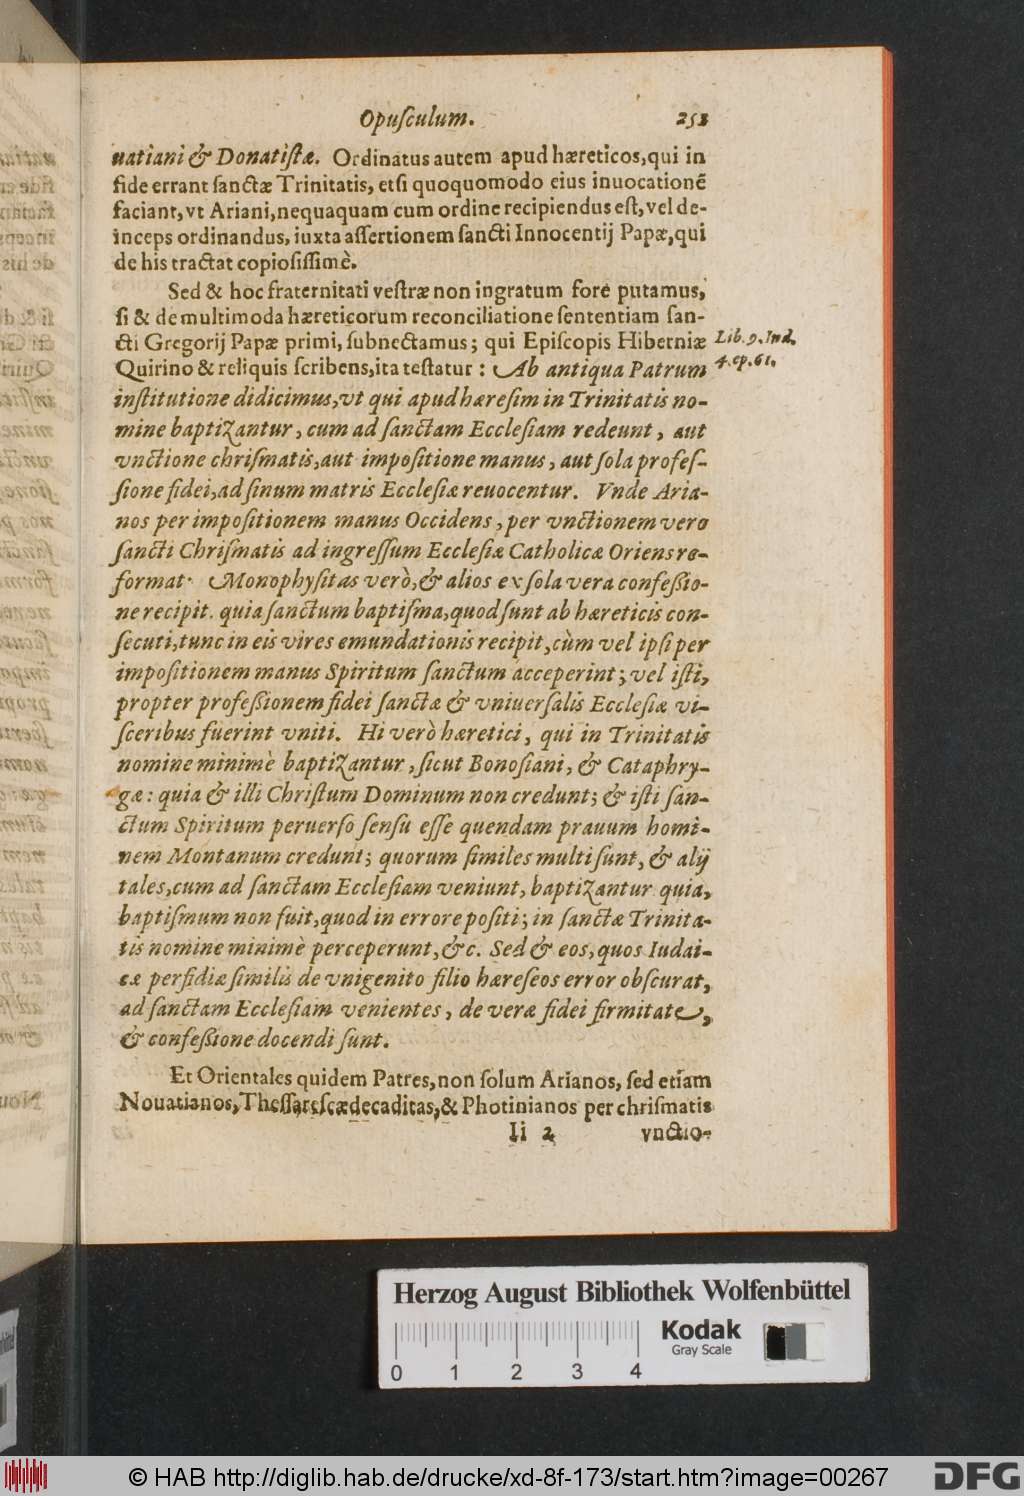 Opuſculum. 251
uatiani & Donatiſtæ. Ordinatus autem apud hæreticos, qui in
fide errant ſanctæ Trinitatis, etſi quoquomodo eius inuocationē
faciant, vt Ariani, nequaquam cum ordine recipiendus eſt, vel de-
inceps ordinandus, iuxta aſſertionem ſancti Innocentij Papæ, qui
de his tractat copioſiſſimè.
Sed & hoc fraternitati veſtræ non ingratum fore putamus,
ſi & de multimoda hæreticorum reconciliatione ſententiam ſan-
cti Gregorij Papæ primi, ſubnectamus; qui Epiſcopis Hiberniæ
Lib. 9. Ind.
Quirino & reliquis ſcribens, ita teſtatur: Ab antiqua Patrum
4. ep. 61.
inſtitutione didicimus, vt qui apud hæreſim in Trinitatis no-
mine baptizantur, cum ad ſanctam Eccleſiam redeunt, aut
vnctione chriſmatis, aut impoſitione manus, aut ſola profeſ-
ſione fidei, ad ſinum matris Eccleſiæ reuocentur. Vnde Aria-
nos per impoſitionem manus Occidens, per vnctionem vero
ſancti Chriſmatis ad ingreſſum Eccleſiæ Catholicæ Oriens re-
format. Monophyſitas verò, & alios ex ſola vera confeſſio-
ne recipit. quia ſanctum baptiſma, quod ſunt ab hæreticis con-
ſecuti, tunc in eis vires emundationis recipit, cùm vel ipſi per
impoſitionem manus Spiritum ſanctum acceperint; vel iſti,
propter profeſſionem fidei ſanctæ & vniuerſalis Eccleſiæ vi-
ſceribus fuerint vniti. Hi verò hæretici, qui in Trinitatis
nomine minimè baptizantur, ſicut Bonoſiani, & Cataphry-
gæ: quia & illi Chriſtum Dominum non credunt; & iſti ſan-
ctum Spiritum peruerſo ſenſu eſſe quendam prauum homi-
nem Montanum credunt; quorum ſimiles multi ſunt, & alij
tales, cum ad ſanctam Eccleſiam veniunt, baptizantur quia,
baptiſmum non fuit, quod in errore poſiti; in ſanctæ Trinita-
tis nomine minimè perceperunt, &c. Sed & eos, quos Iudai-
cæ perfidiæ ſimilis de vnigenito filio hæreſeos error obſcurat,
ad ſanctam Eccleſiam venientes, de veræ fidei firmitate,
& confeſſione docendi ſunt.
Et Orientales quidem Patres, non ſolum Arianos, ſed etiam
Nouatianos, Theſſareſcædecaditas, & Photinianos per chriſmatis
Ii 2 vnctio-
Herzog August Bibliothek Wolfenbüttel
Kodak
Gray Scale
0 1 2 3 4
© HAB http://diglib.hab.de/drucke/xd-8f-173/start.htm?image=00267
DFG